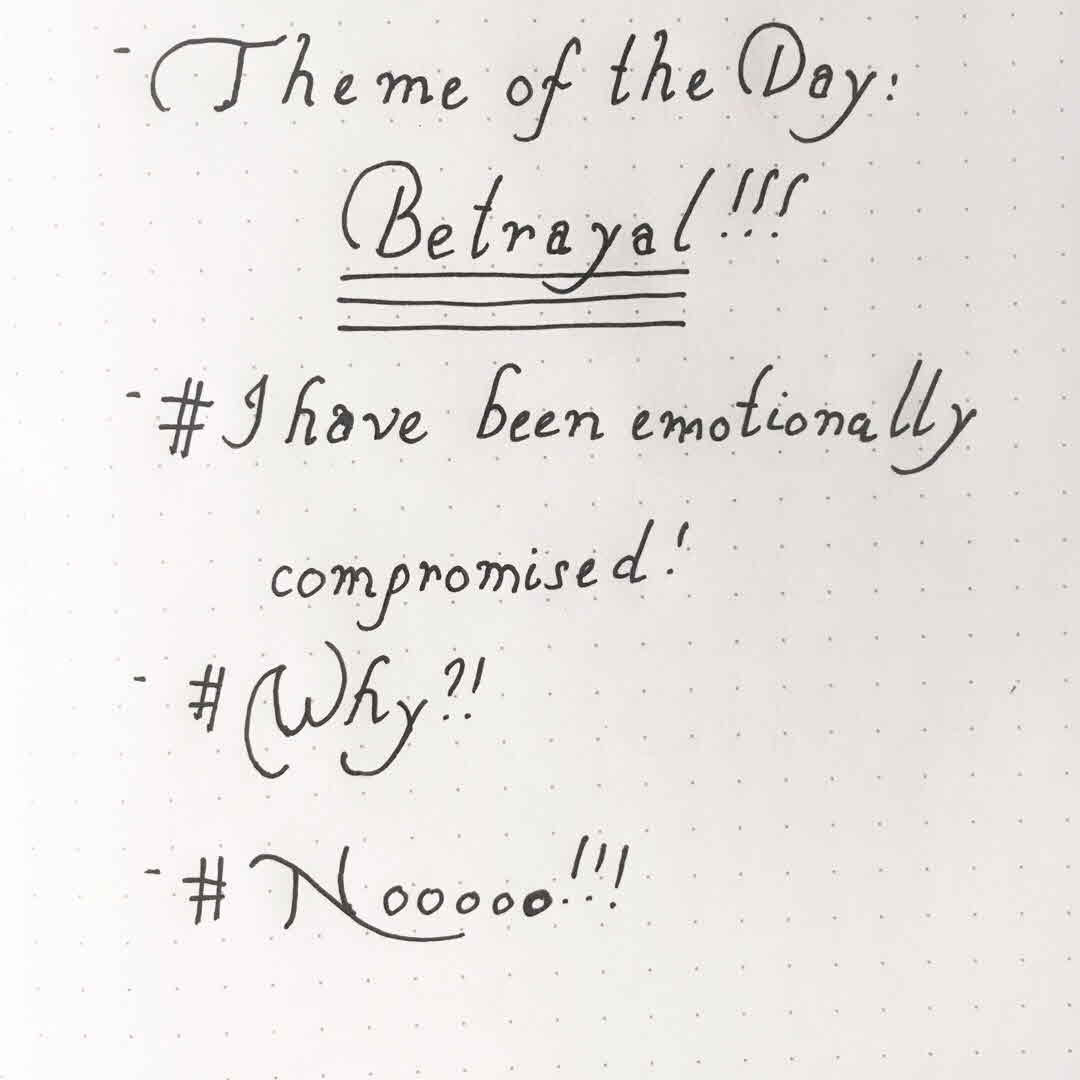 - Theme of the Day:
Betrayal!!!
- # I have been emotionally
compromised!
- # Why?!
- # Nooooo!!!